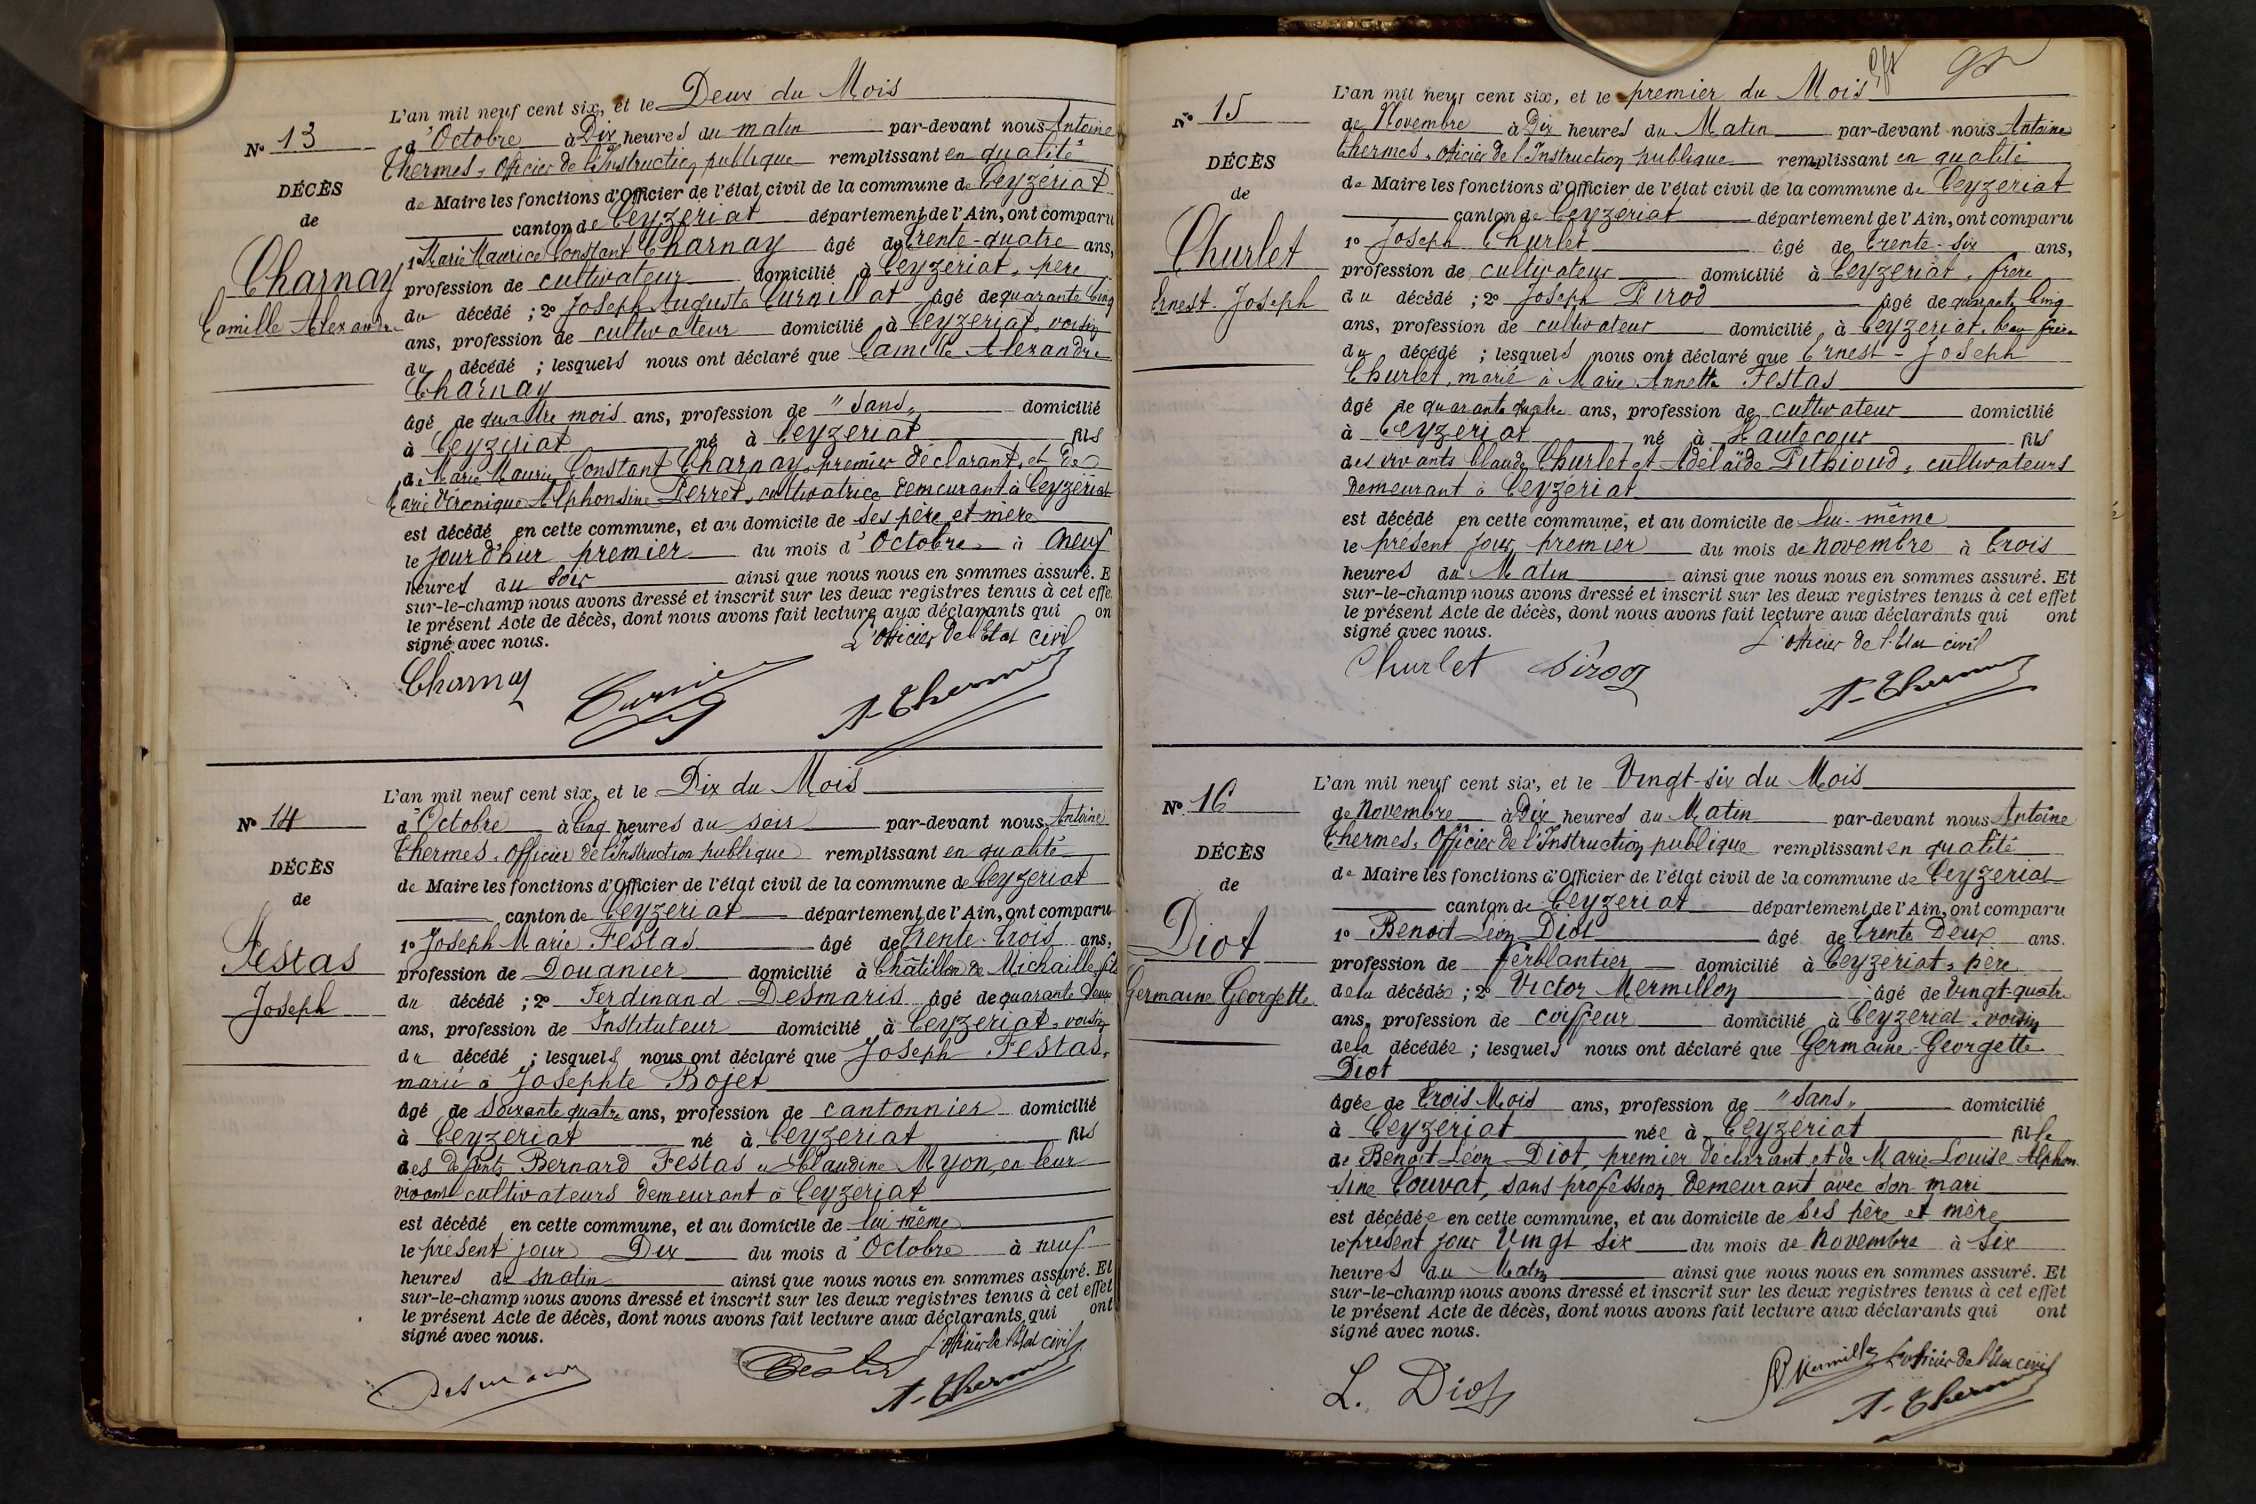 L'an mil neuf cent six, et le Deux du Mois
d'Octobre à Dix heures du matin par-devant nous Antoine
Thermes, Officier de l'Instruction publique remplissant en qualité
de Maire les fonctions d'Officier de l'état civil de la commune de Ceyzériat
canton de Ceyzériat département de l'Ain, ont comparu
1º Marie Maurice Constant Charnay âgé de trente-quatre ans,
profession de cultivateur domicilié à Ceyzériat, père
du décédé ; 2º Joseph Auguste Curnillat âgé de quarante cinq
ans, profession de cultivateur domicilié à Ceyzériat, voisin
du décédé ; lesquels nous ont déclaré que Camille Alexandre
Charnay
âgé de quatre mois ans, profession de "sans" domicilié
à Ceyzériat né à Ceyzériat fils
de Marie Maurice Constant Charnay, premier déclarant, et de
Marie Véronique Alphonsine Perret, cultivatrice demeurant à Ceyzériat
est décédé en cette commune, et au domicile de ses père et mère
le jour d'hier premier du mois d'Octobre à neuf
heures du soir ainsi que nous nous en sommes assuré. E
sur-le-champ nous avons dressé et inscrit sur les deux registres tenus à cet effe
le présent Acte de décès, dont nous avons fait lecture aux déclarants qui on
signé avec nous.
L'officier de l'Etat civil
Charnay
A. Thermes
Nº 13
DÉCÈS
de
Charnay
Camille Alexandre
L'an mil neuf cent six, et le Dix du Mois
d'Octobre à Cinq heures du soir par-devant nous Antoine
Thermes, Officier de l'Instruction publique remplissant en qualité
de Maire les fonctions d'Officier de l'état civil de la commune de Ceyzériat
canton de Ceyzériat département de l'Ain, ont comparu
1º Joseph Marie Festas âgé de trente-trois ans,
profession de Douanier domicilié à Châtillon de Michaille, fils
du décédé ; 2º Ferdinand Desmaris âgé de quarante deux
ans, profession de Instituteur domicilié à Ceyzériat, voisin
du décédé ; lesquels nous ont déclaré que Joseph Festas,
marié à Josephte Bojet
âgé de soixante quatre ans, profession de cantonnier domicilié
à Ceyzériat né à Ceyzériat fils
des défunts Bernard Festas et Claudine Myon, en leur
vivant cultivateurs demeurant à Ceyzériat
est décédé en cette commune, et au domicile de lui même
le présent jour Dix du mois d'Octobre à neuf
heures du matin ainsi que nous nous en sommes assuré. Et
sur-le-champ nous avons dressé et inscrit sur les deux registres tenus à cet effet
le présent Acte de décès, dont nous avons fait lecture aux déclarants qui ont
signé avec nous.
L'officier de l'état civil
Desmaris
Festas
A. Thermes
Nº 14
DÉCÈS
de
Festas
Joseph
L'an mil neuf cent six, et le premier du Mois
de Novembre à Dix heures du Matin par-devant nous Antoine
Thermes, officier de l'Instruction publique remplissant en qualité
de Maire les fonctions d'Officier de l'état civil de la commune de Ceyzériat
canton de Ceyzériat département de l'Ain, ont comparu
1º Joseph Churlet âgé de trente-six ans,
profession de cultivateur domicilié à Ceyzériat, frère
du décédé ; 2º Joseph Pirod âgé de quarante cinq
ans, profession de cultivateur domicilié à Ceyzériat, beau frère
du décédé ; lesquels nous ont déclaré que Ernest-Joseph
Churlet, marié à Marie Annette Festas
âgé de quarante quatre ans, profession de cultivateur domicilié
à Ceyzériat né à Hautecour fils
des vivants Claude Churlet et Adélaïde Pithioud, cultivateurs
demeurant à Ceyzériat
est décédé en cette commune, et au domicile de lui-même
le présent jour premier du mois de novembre à trois
heures du Matin ainsi que nous nous en sommes assuré. Et
sur-le-champ nous avons dressé et inscrit sur les deux registres tenus à cet effet
le présent Acte de décès, dont nous avons fait lecture aux déclarants qui ont
signé avec nous.
L'officier de l'Etat civil
Churlet Pirod
A. Thermes
Nº 15
DÉCÈS
de
Churlet
Ernest-Joseph
L'an mil neuf cent six, et le Vingt-six du Mois
de Novembre à Dix heures du Matin par-devant nous Antoine
Thermes, Officier de l'Instruction publique remplissant en qualité
de Maire les fonctions d'Officier de l'état civil de la commune de Ceyzériat
canton de Ceyzériat département de l'Ain, ont comparu
1º Benoit Léon Diot âgé de trente Deux ans.
profession de ferblantier domicilié à Ceyzériat, père
de la décédée ; 2º Victor Mermillon âgé de Vingt-quatre
ans, profession de coiffeur domicilié à Ceyzériat, voisin
de la décédée ; lesquels nous ont déclaré que Germaine-Georgette
Diot
âgée de trois Mois ans, profession de "sans" domicilié
à Ceyzériat née à Ceyzériat fille
de Benoit Léon Diot, premier déclarant et de Marie Louise Alphon
sine Couvat, sans profession demeurant avec son mari
est décédée en cette commune, et au domicile de ses père et mère
le présent jour Vingt six du mois de Novembre à six
heures du Matin ainsi que nous nous en sommes assuré. Et
sur-le-champ nous avons dressé et inscrit sur les deux registres tenus à cet effet
le présent Acte de décès, dont nous avons fait lecture aux déclarants qui ont
signé avec nous.
L'officier de l'Etat civil
L. Diot
A. Thermes
Nº 16
DÉCÈS
de
Diot
Germaine Georgette